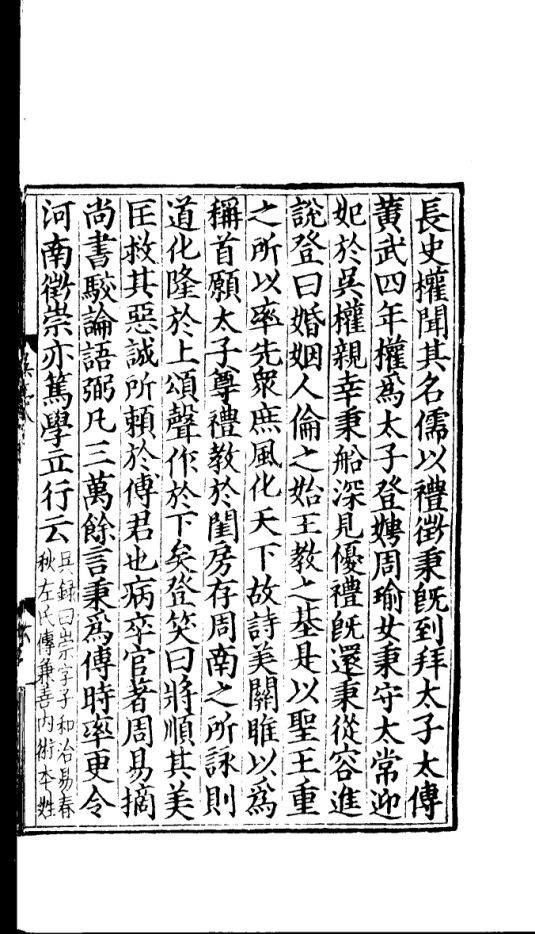 長史權聞其名儒以禮徵秉旣到拜太子太傅
黄武四年權爲太子登娉周瑜女秉守太常迎
妃於吳權親幸秉船深見優禮旣還秉從容進
說登曰婚姻人倫之始王教之基是以聖王重
之所以率先衆庶風化天下故詩美關雎以爲
稱首願太子尊禮教於閨房存周南之所詠則
道化隆於上頌聲作於下矣登笑曰將順其美
匡救其惡誠所賴於傅君也病卒官著周易摘
尚書駮論語弼凡三萬餘言秉爲傅時率更令
河南徵崇亦篤學立行云
吳録曰崇字子和治易春
秋左氏傳兼善内術本姓